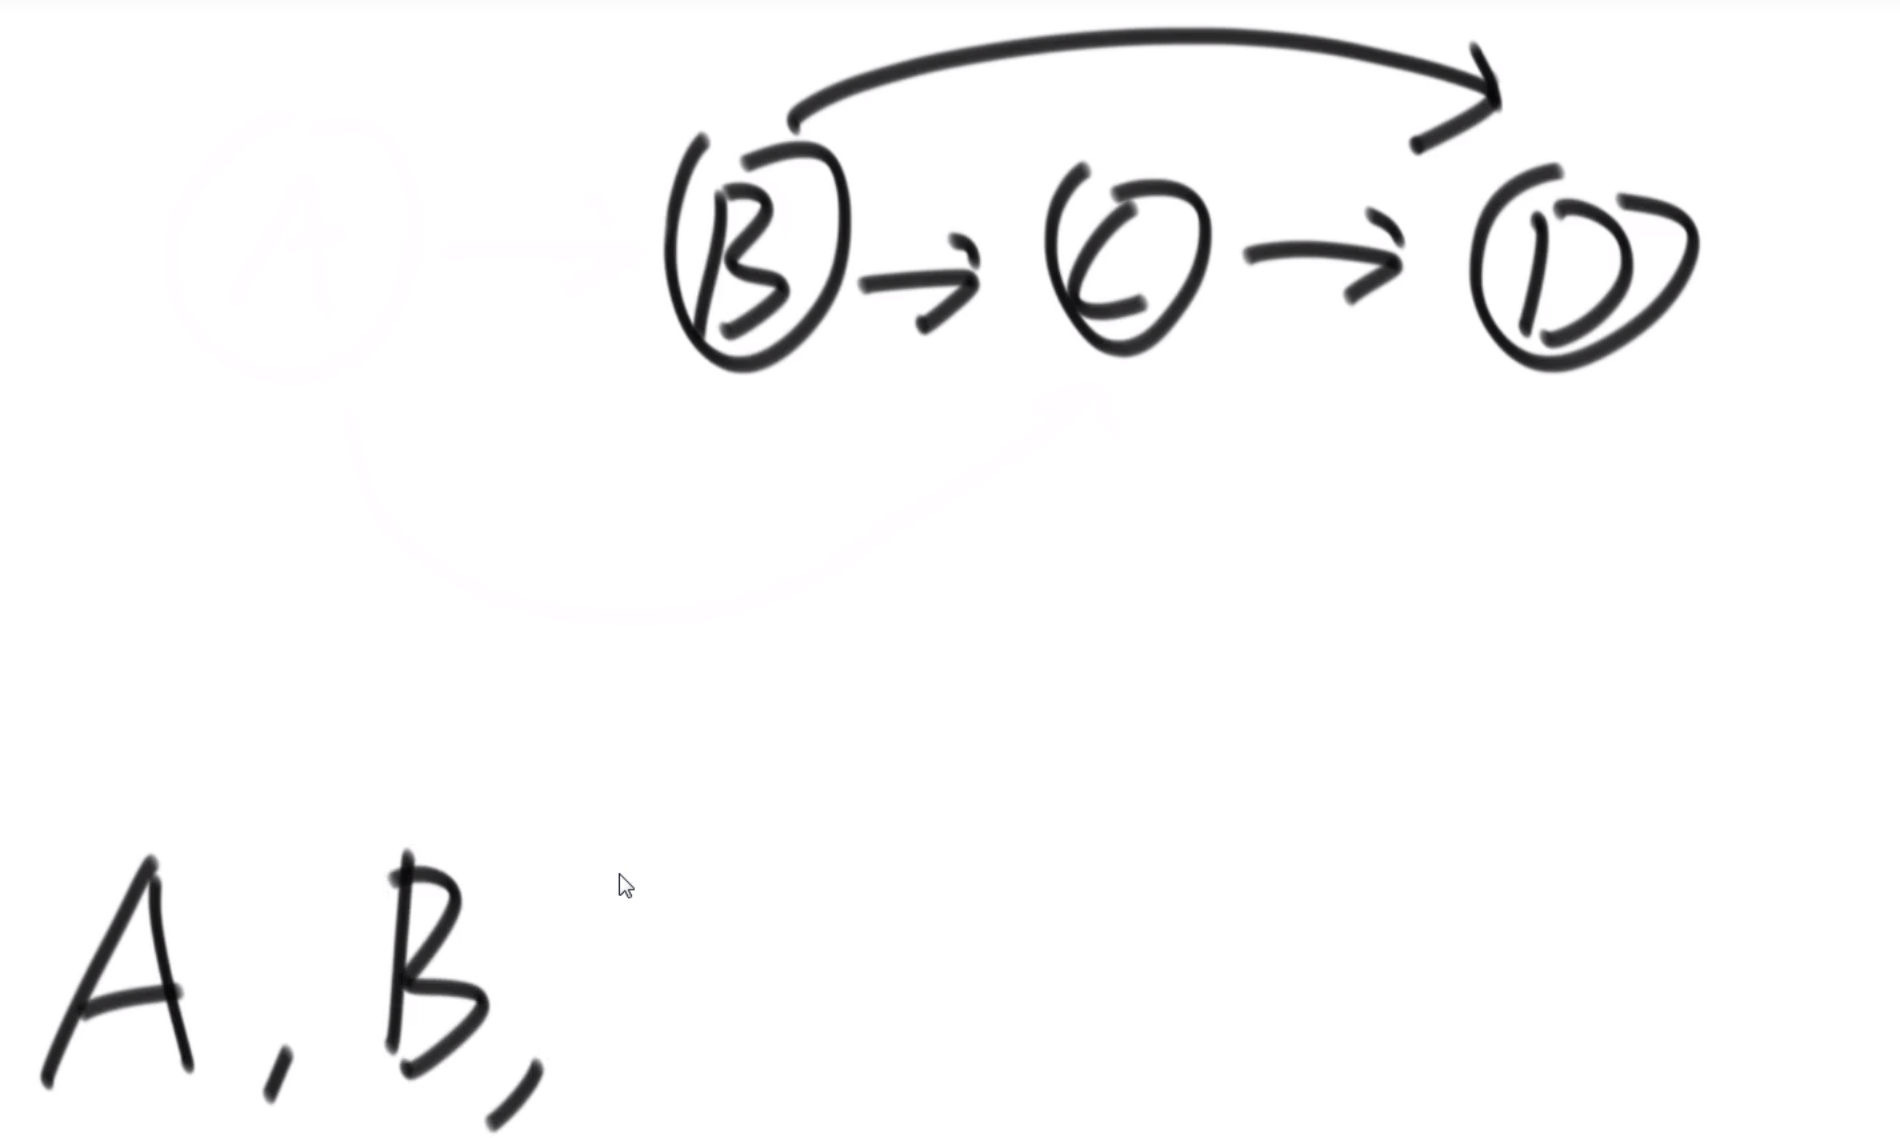 B → C → D
A, B,